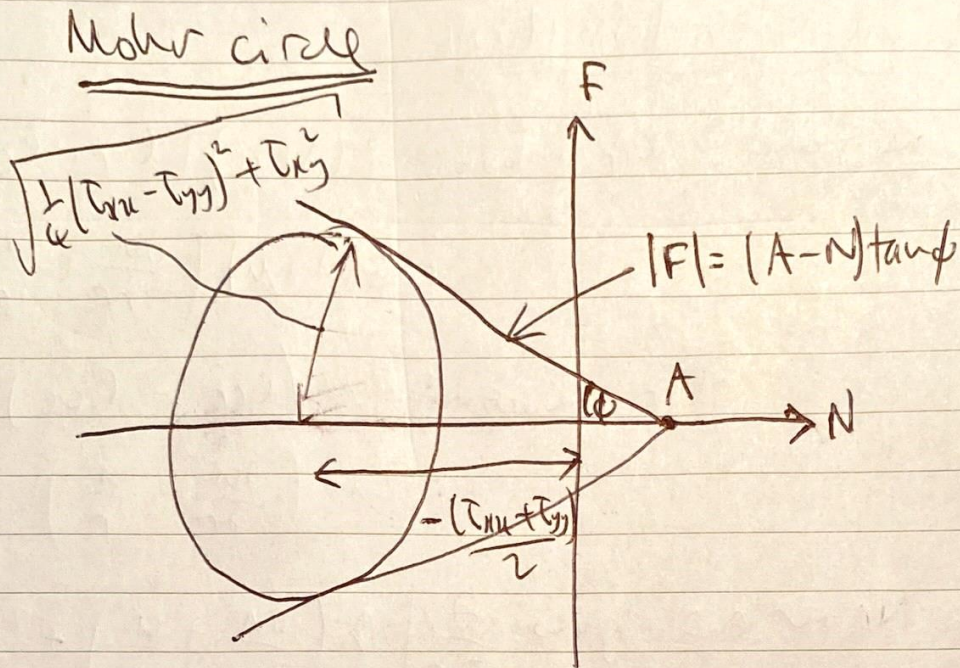 Mohr circle
F
√(¼(τxx-τyy)²+τxy²)
|F|=(A-N)tanφ
A
φ
N
-(τxx+τyy)/2